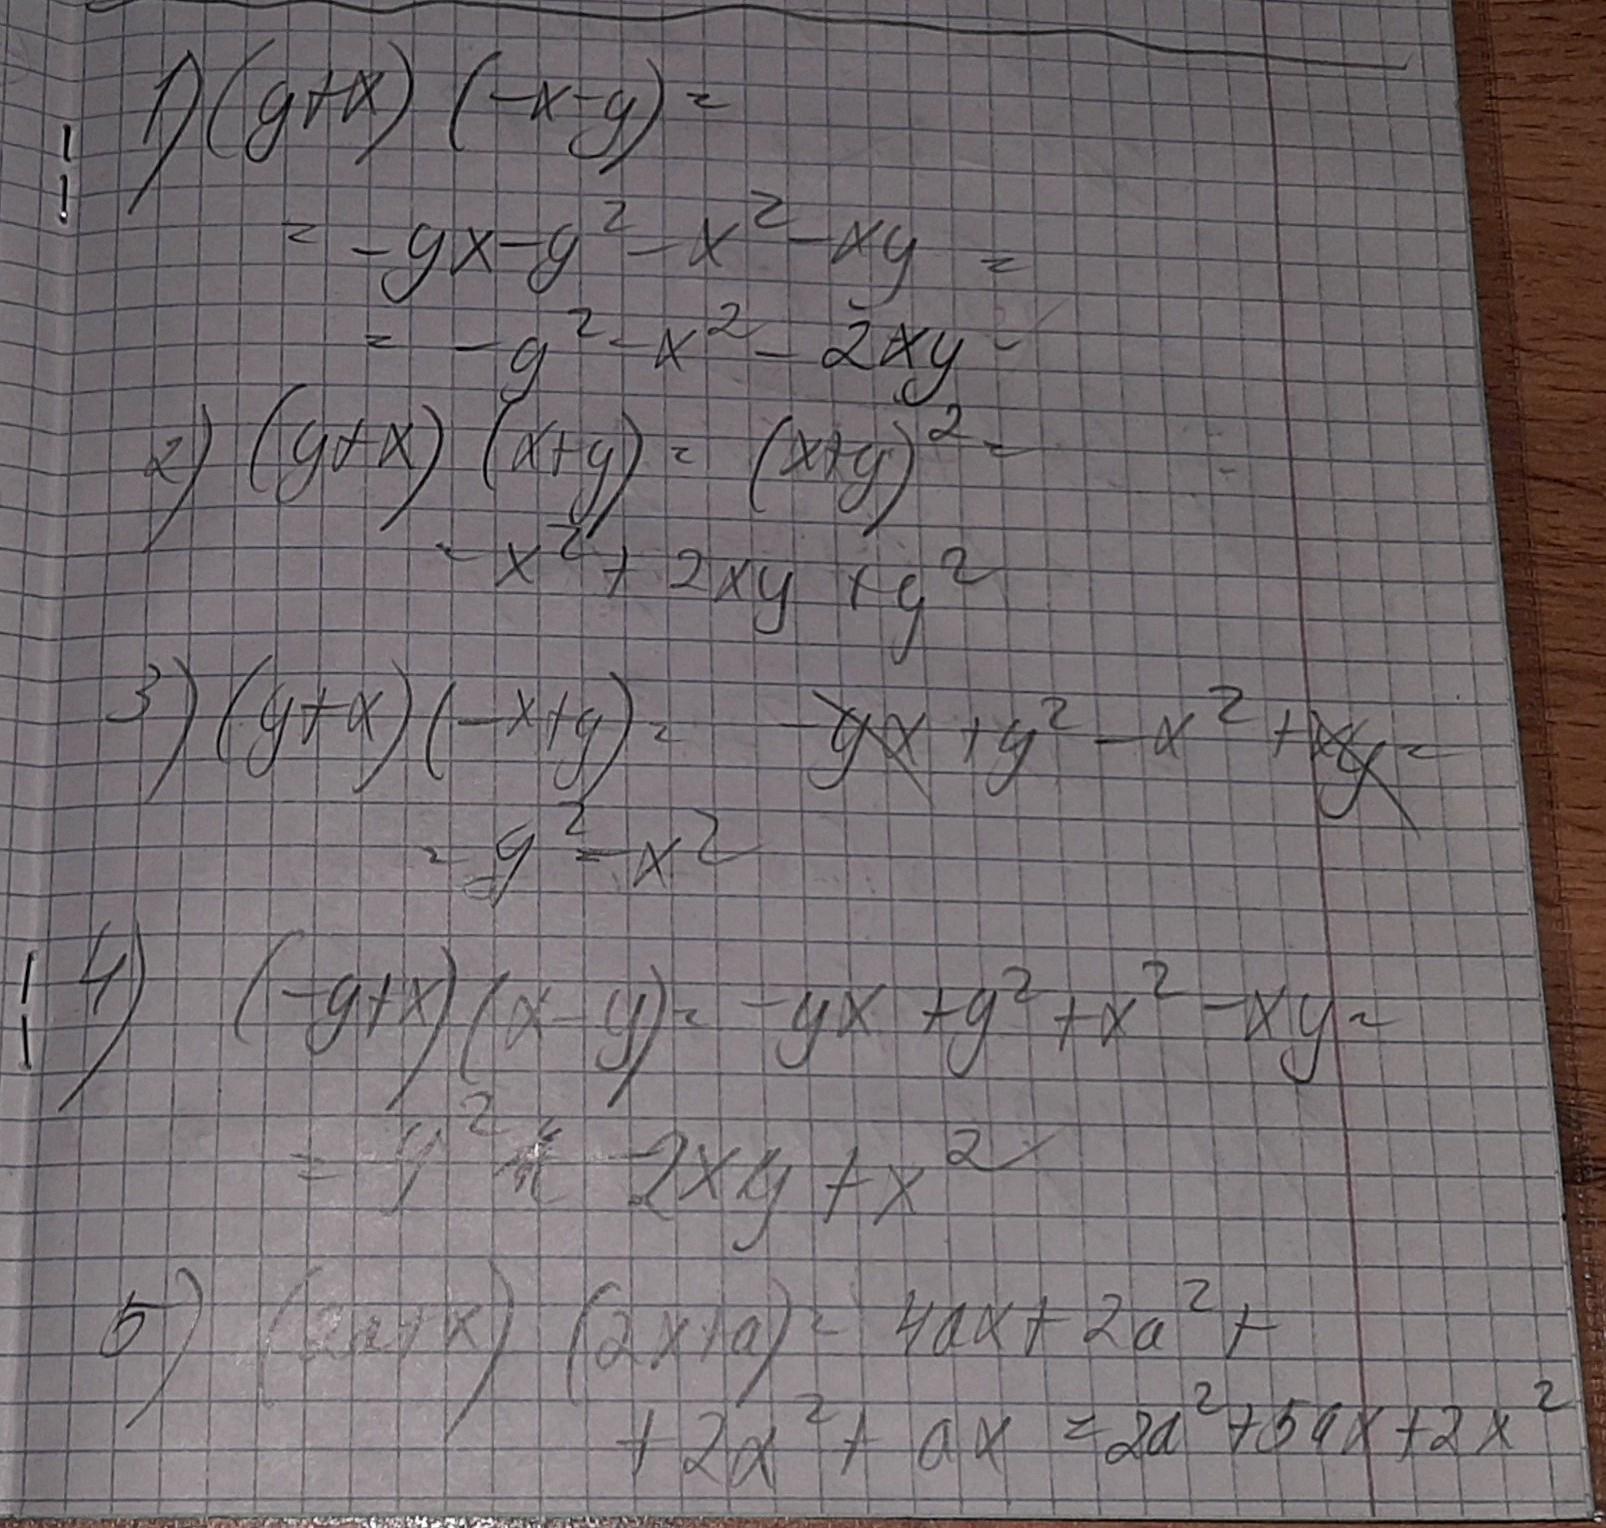 1) (y+x) (-x-y) =
= -yx-y²-x²-xy =
= -y²-x²-2xy
2) (y+x) (x+y) = (x+y)² =
= x²+2xy+y²
3) (y+x)(-x+y) = -yx+y²-x²+xy =
= y²-x²
4) (-y+x)(x-y) = -yx+y²+x²-xy =
= y² -2xy+x²
5) (2a+x) (2x+a) = 4ax+2a²+
+2x²+ax = 2a²+5ax+2x²